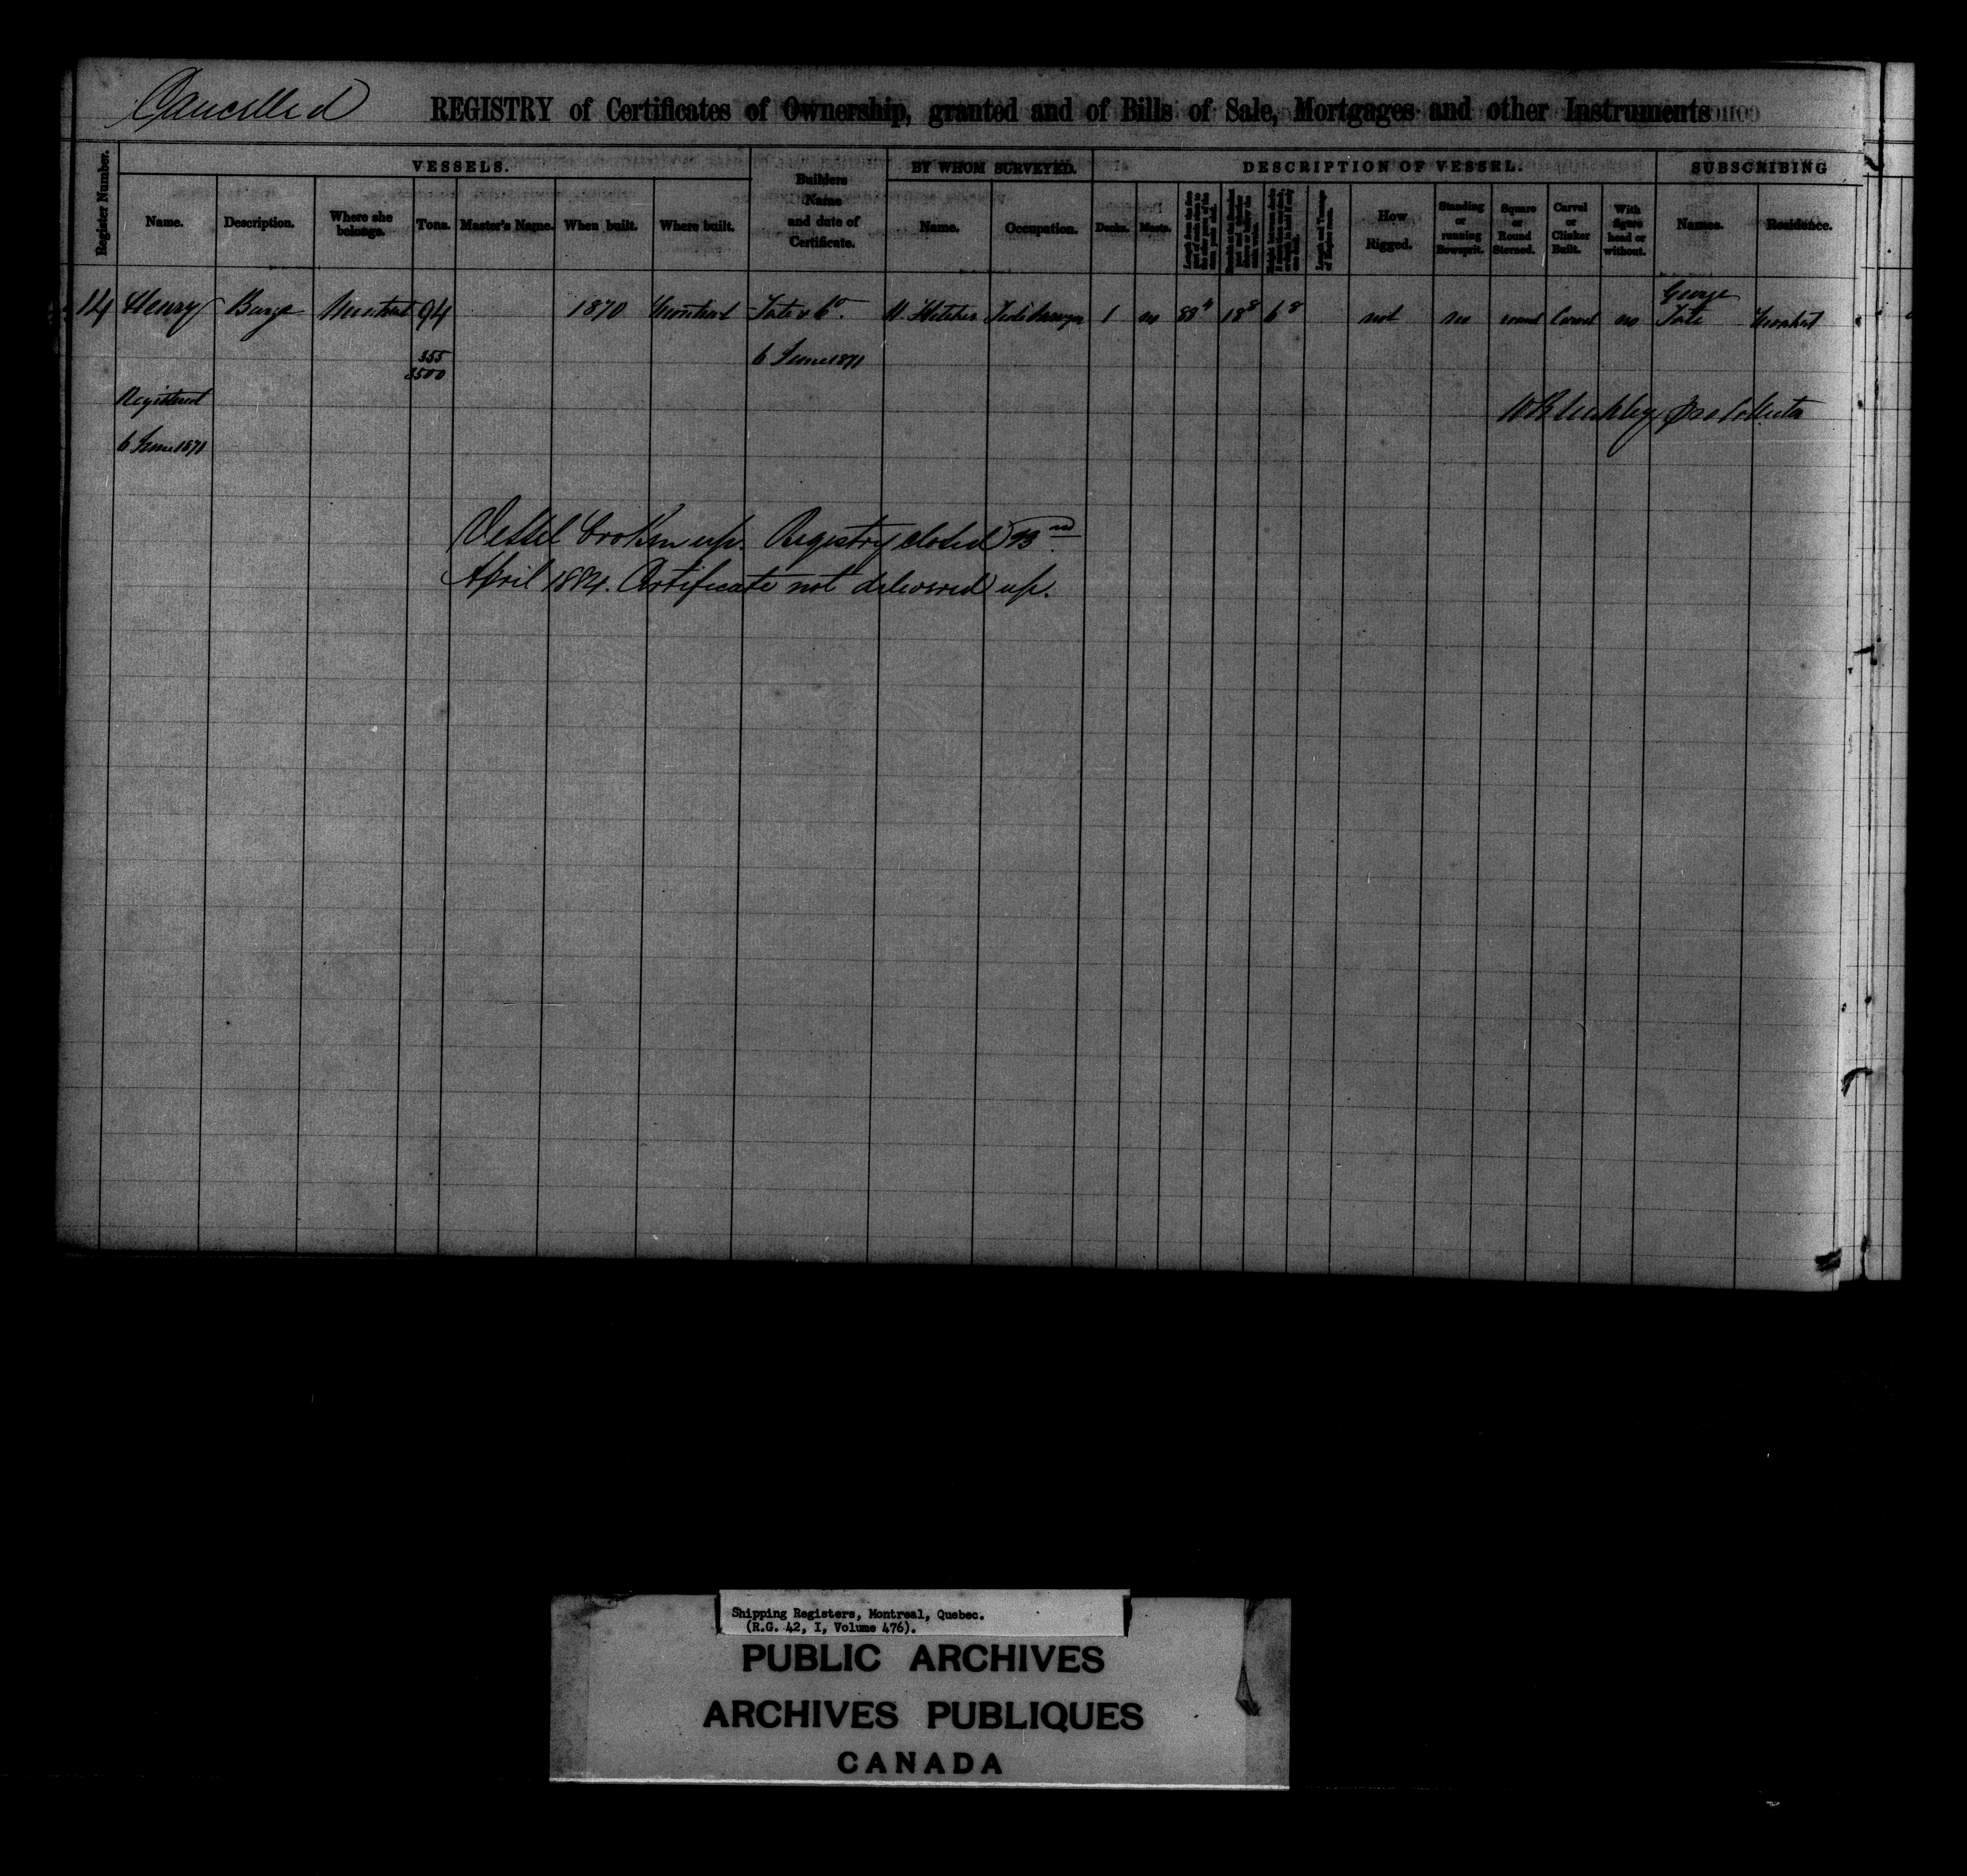 Cancelled
REGISTRY of Certificates of Ownership, granted and of Bills of Sale, Mortgages and other Instruments
Register Number.
VESSELS.
Builders Name and date of Certificate.
BY WHOM SURVEYED.
DESCRIPTION OF VESSEL.
SUBSCRIBING
Name. Description. Where she belongs. Tons. Master's Name. When built. Where built. Name. Occupation. Decks. Masts. How Rigged. Standing or running Bowsprit. Square or Round Sterned. Carvel or Clinker Built. With figure head or without. Names. Residence.
14 Henry Barge Montreal 94 1870 Montreal Tate & Co. 1 no 88 18 8 6 8 not no round Carvel no George Tate Montreal
355
3500
6 June 1871
Registered
6 June 1871
Vessel broken up. Registry closed
April 1884. Certificate not delivered up.
Shipping Registers, Montreal, Quebec.
(R.G. 42, I, Volume 476).
PUBLIC ARCHIVES
ARCHIVES PUBLIQUES
CANADA